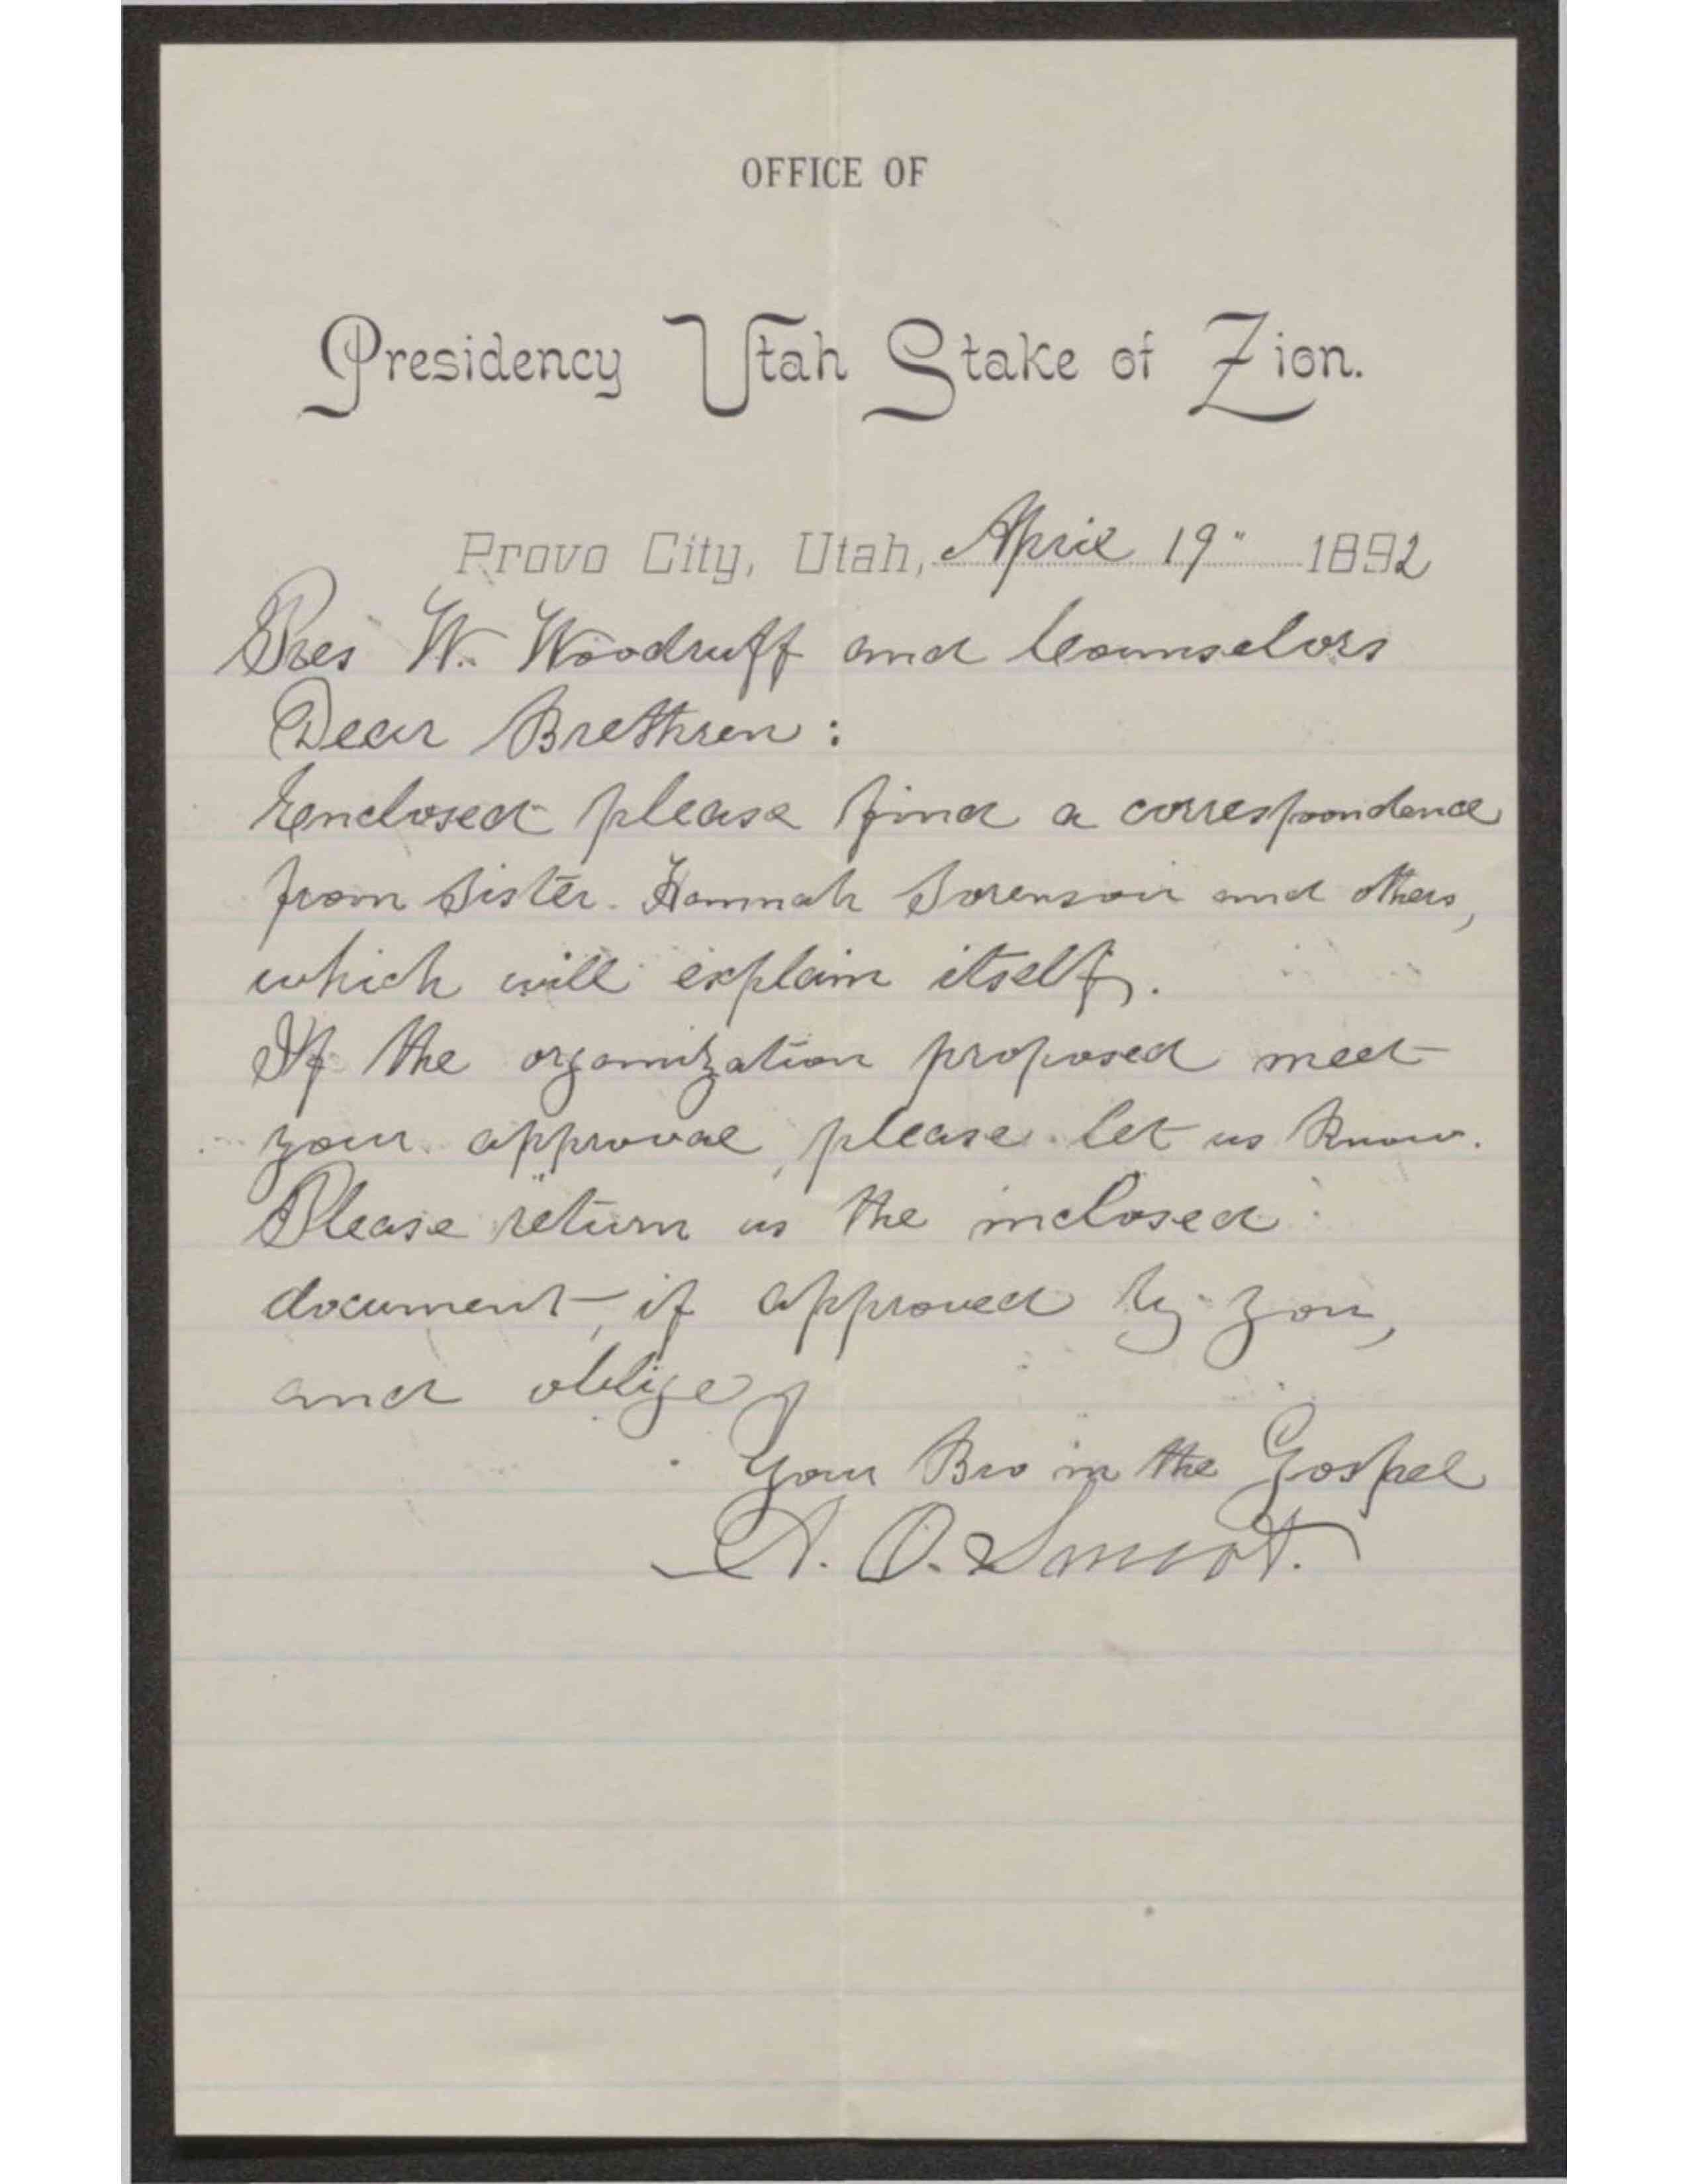 OFFICE OF
Presidency Utah Stake of Zion.
Provo City, Utah, April 19" 1892
Pres W. Woodruff and Counselors
Dear Brethren :
Enclosed please find a correspondence
from Sister. Hannah Sorenson and others,
which will explain itself.
If the organization proposed meet
your approval, please let us know.
Please return us the inclosed
document, if approved by you,
and oblige,
Your Bro in the Gospel
A. O. Smoot.